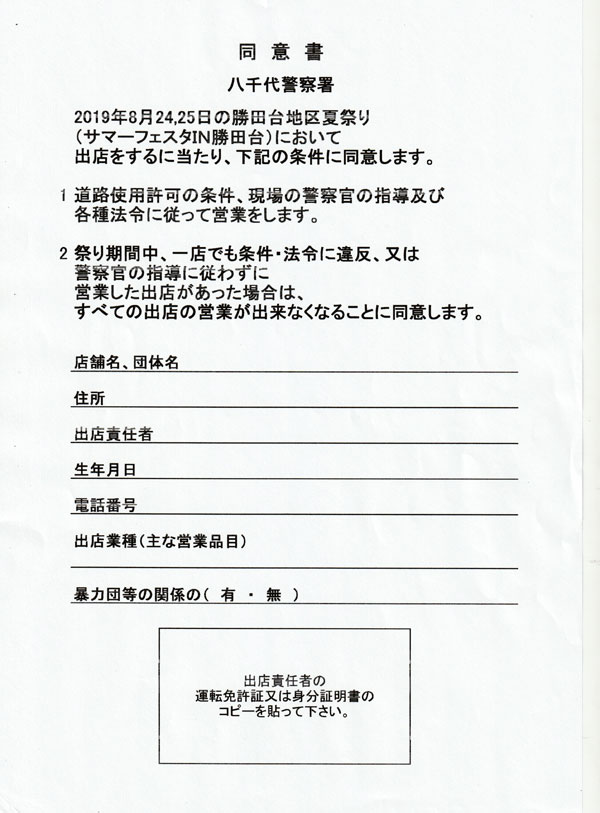 同 意 書
八千代警察署
2019年8月24,25日の勝田台地区夏祭り
（サマーフェスタIN勝田台）において
出店をするに当たり、下記の条件に同意します。
1 道路使用許可の条件、現場の警察官の指導及び
各種法令に従って営業をします。
2 祭り期間中、一店でも条件・法令に違反、又は
警察官の指導に従わずに
営業した出店があった場合は、
すべての出店の営業が出来なくなることに同意します。
店舗名、団体名
住所
出店責任者
生年月日
電話番号
出店業種（主な営業品目）
暴力団等の関係の（ 有 ・ 無 ）
出店責任者の
運転免許証又は身分証明書の
コピーを貼って下さい。